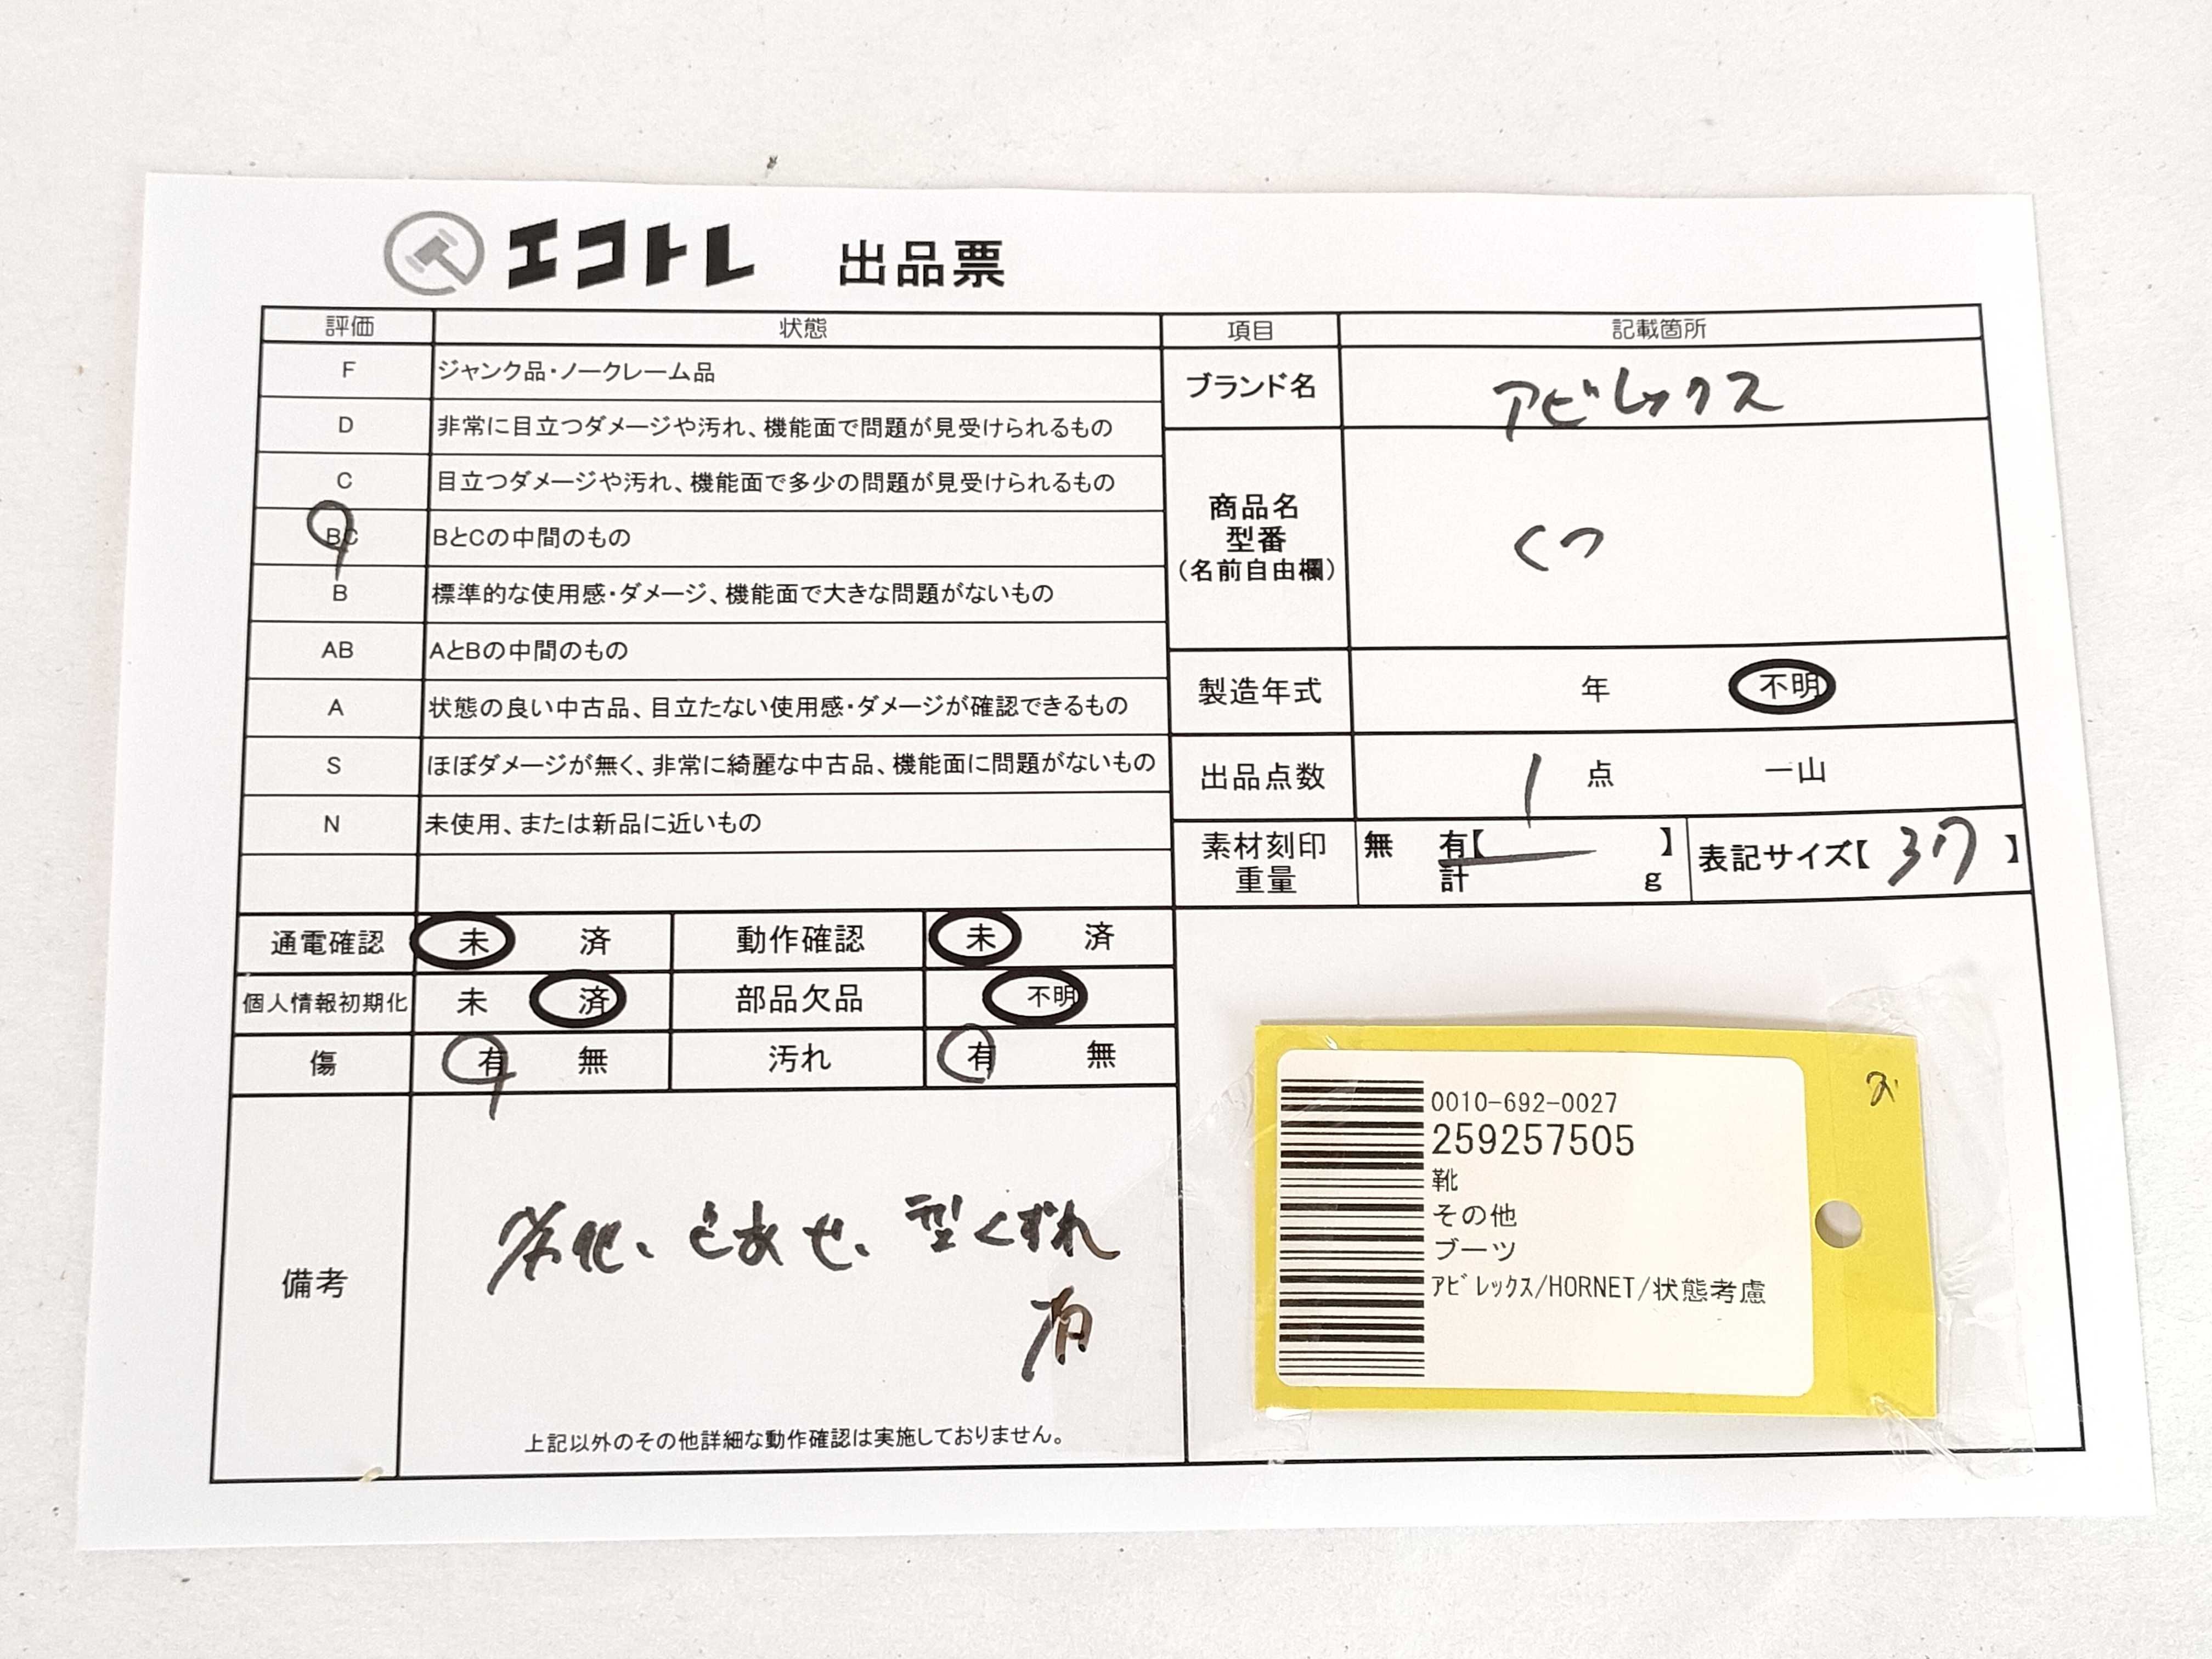 エコトレ 出品票
評価 状態 項目 記載箇所
F ジャンク品・ノークレーム品
D 非常に目立つダメージや汚れ、機能面で問題が見受けられるもの
C 目立つダメージや汚れ、機能面で多少の問題が見受けられるもの
BC BとCの中間のもの
B 標準的な使用感・ダメージ、機能面で大きな問題がないもの
AB AとBの中間のもの
A 状態の良い中古品、目立たない使用感・ダメージが確認できるもの
S ほぼダメージが無く、非常に綺麗な中古品、機能面に問題がないもの
N 未使用、または新品に近いもの
ブランド名 アビレックス
商品名
型番
(名前自由欄)
くつ
製造年式 年 不明
出品点数 1 点 一山
素材刻印 無 有【 】
重量 計 g
表記サイズ【 】
通電確認 未 済 動作確認 未 済
個人情報初期化 未 済 部品欠品 不明
傷 有 無 汚れ 有 無
備考
劣化、色あせ、型くずれ
有
上記以外のその他詳細な動作確認は実施しておりません。
0010-692-0027
259257505
靴
その他
ブーツ
ｱﾋﾞﾚｯｸｽ/HORNET/状態考慮